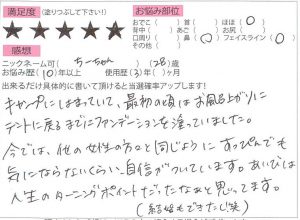 満足度（塗りつぶして下さい!）
★ ★ ★ ★ ★
お悩み部位
おでこ（ ）首（ ）ほほ（○）
背中（ ）あご（ ）
口周り（○）鼻（○）フェイスライン（○）
その他（ ）
感想
ニックネーム可（ちーちゃん）（28）歳
お悩み歴（10）年以上 使用歴（3）年（ ）ヶ月
出来るだけ具体的に書いて頂けると当選確率アップします!
キャンプにはまっていて、最初の頃はお風呂上がりに
テントに戻るまでにファンデーションを塗っていました。
今では、他の女性の方と同じように すっぴんでも
気にならないくらい、自信がついています。あいびは
人生のターニングポイントだったなぁと思ってます。
（結婚もできたし笑）